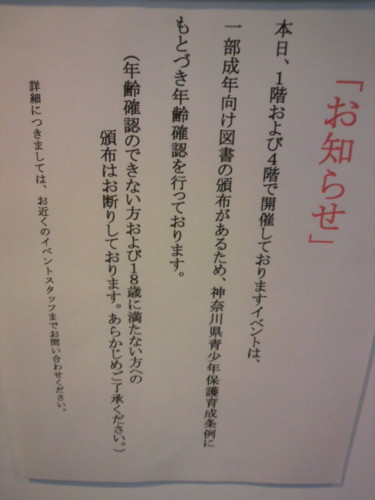 「お知らせ」
本日、1階および4階で開催しておりますイベントは、
一部成年向け図書の頒布があるため、神奈川県青少年保護育成条例に
もとづき年齢確認を行っております。
(年齢確認のできない方および18歳に満たない方への
頒布はお断りしております。あらかじめご了承ください。)
詳細につきましては、お近くのイベントスタッフまでお問い合わせください。